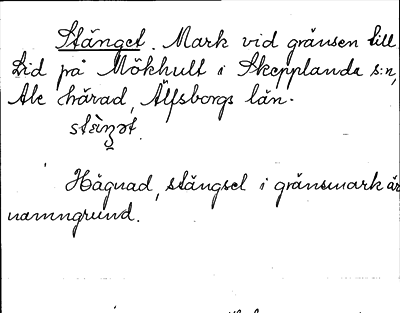 Stänget. Mark vid gränsen till
Lid på Mökhult i Skepplanda s:n,
Ale härad, Älfsborgs län.
Hägnad, stängsel i gränsmark är
namngrund.